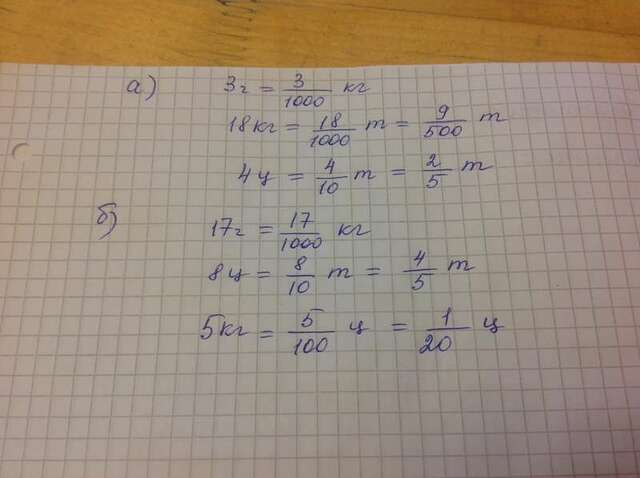 а) 3г = 3/1000 кг
18кг = 18/1000 т = 9/500 т
4ц = 4/10 т = 2/5 т
б) 17г = 17/1000 кг
8ц = 8/10 т = 4/5 т
5кг = 5/100 ц = 1/20 ц